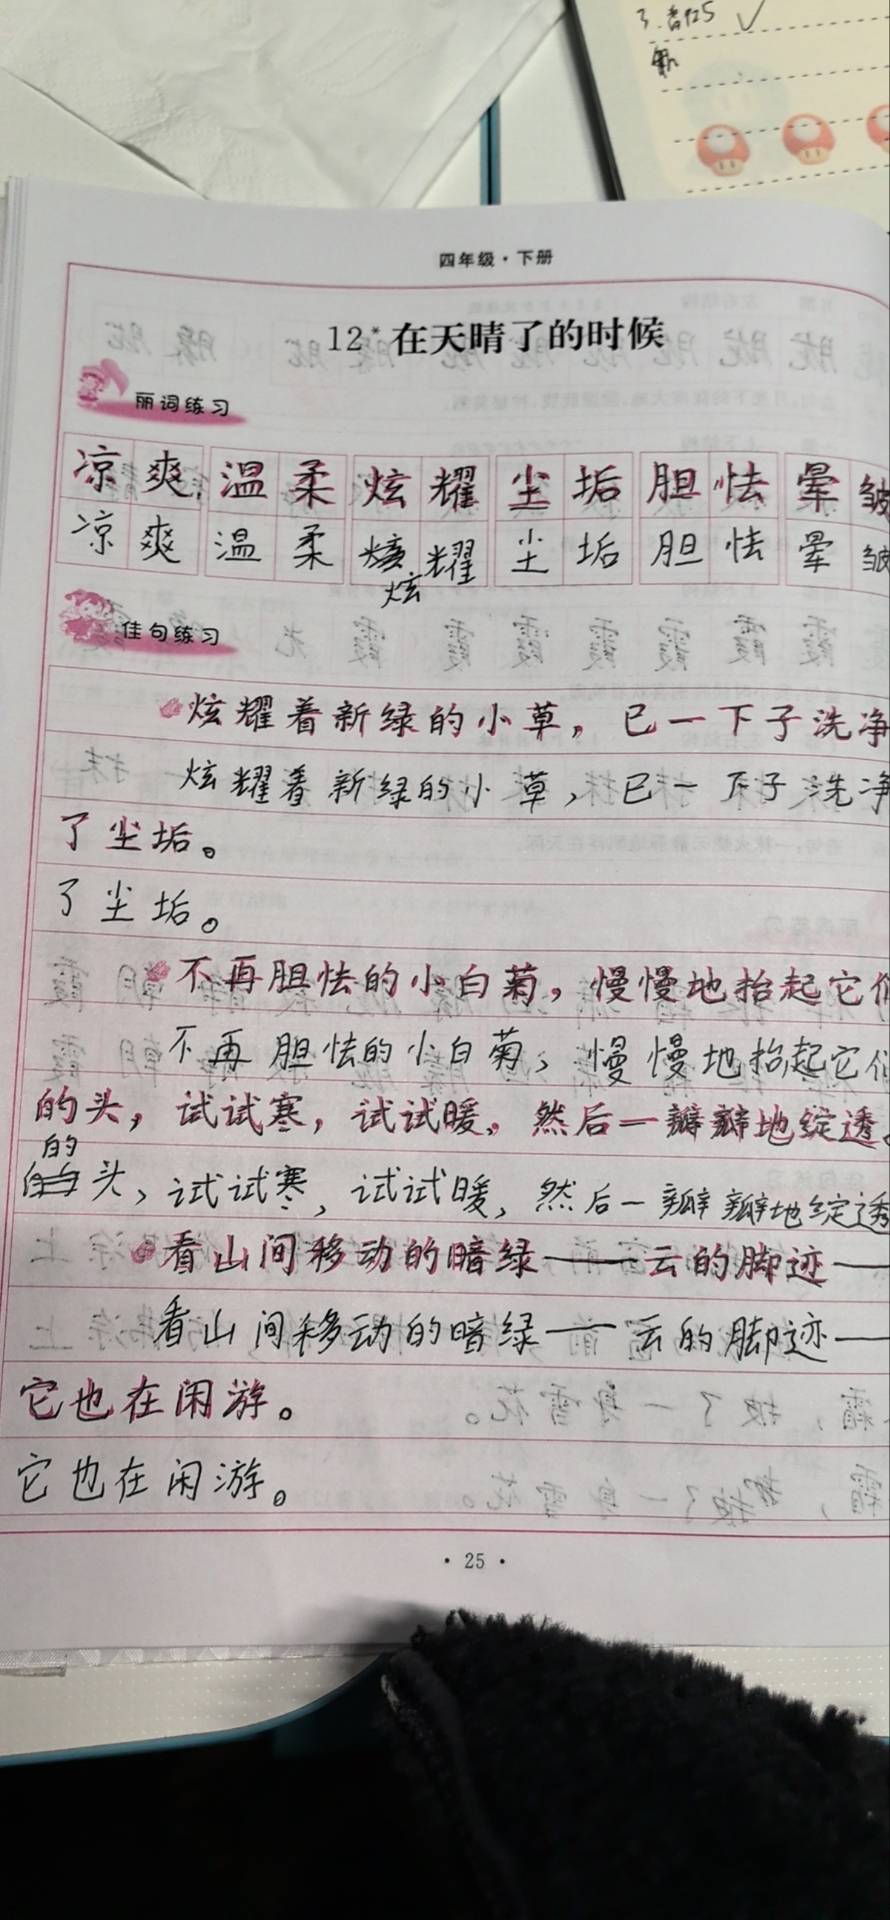 3.
四年级·下册
12* 在天晴了的时候
丽词练习
凉爽 温柔 炫耀 尘垢 胆怯 晕皱
凉爽 温柔 耀 尘垢 胆怯 晕皱
炫
佳句练习
炫耀着新绿的小草，已一下子洗净
炫耀着新绿的小草，已一下子洗净
了尘垢。
了尘垢。
不再胆怯的小白菊，慢慢地抬起它们
不再胆怯的小白菊，慢慢地抬起它们
的头，试试寒，试试暖，然后一瓣瓣地绽透。
的
头，试试寒，试试暖，然后一瓣瓣地绽透
看山间移动的暗绿——云的脚迹—
看山间移动的暗绿——云的脚迹—
它也在闲游。
它也在闲游。
·25·